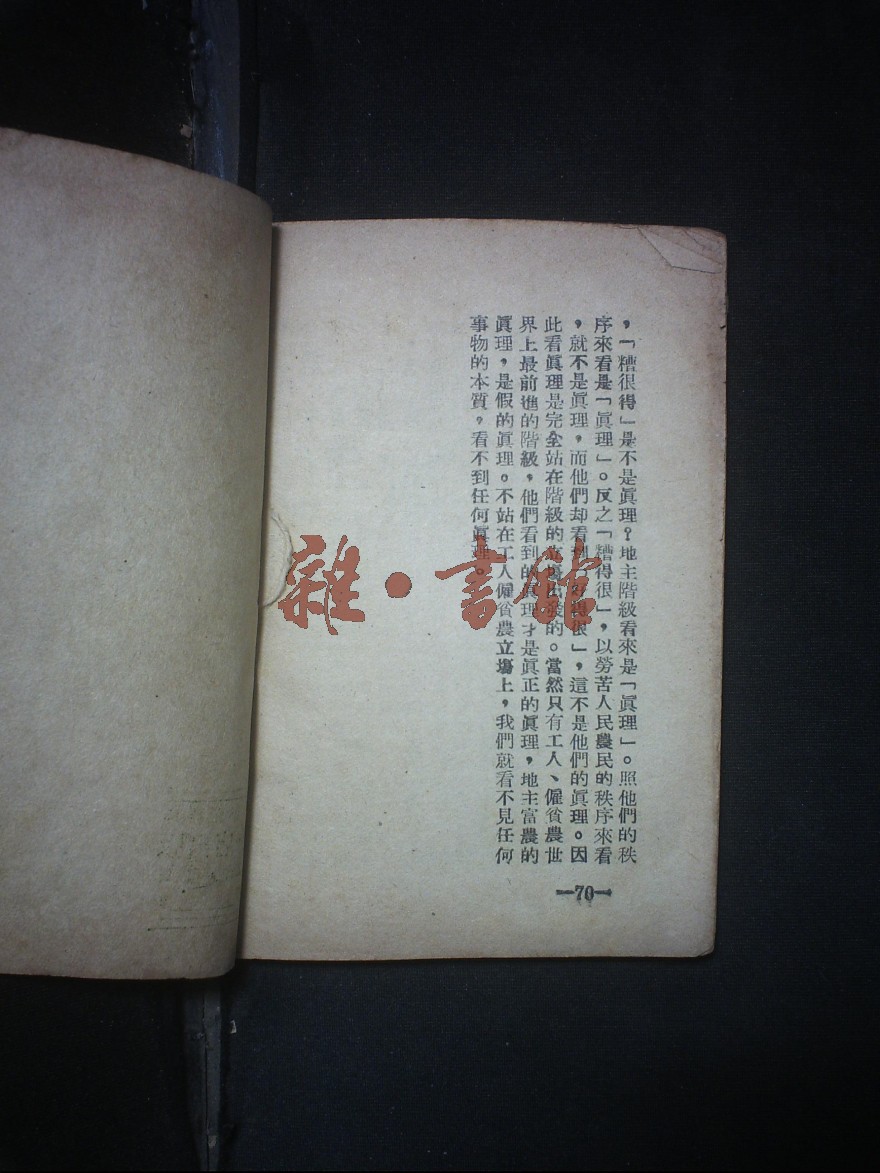 ，「糟很得」是不是眞理？地主階級看來是「眞理」。照他們的秩
序來看是「眞理」。反之「糟得很」，以勞苦人民農民的秩序來看
，就不是眞理，而他們却看到「好得很」，這不是他們的眞理。因
此看眞理是完全站在階級的立塲出發的。當然只有工人、僱貧農世
界上最前進的階級，他們看到的眞理才是眞正的眞理，地主富農的
眞理，是假的眞理。不站在工人僱貧農立塲上，我們就看不見任何
事物的本質，看不到任何眞理。
—70—
雜·書館